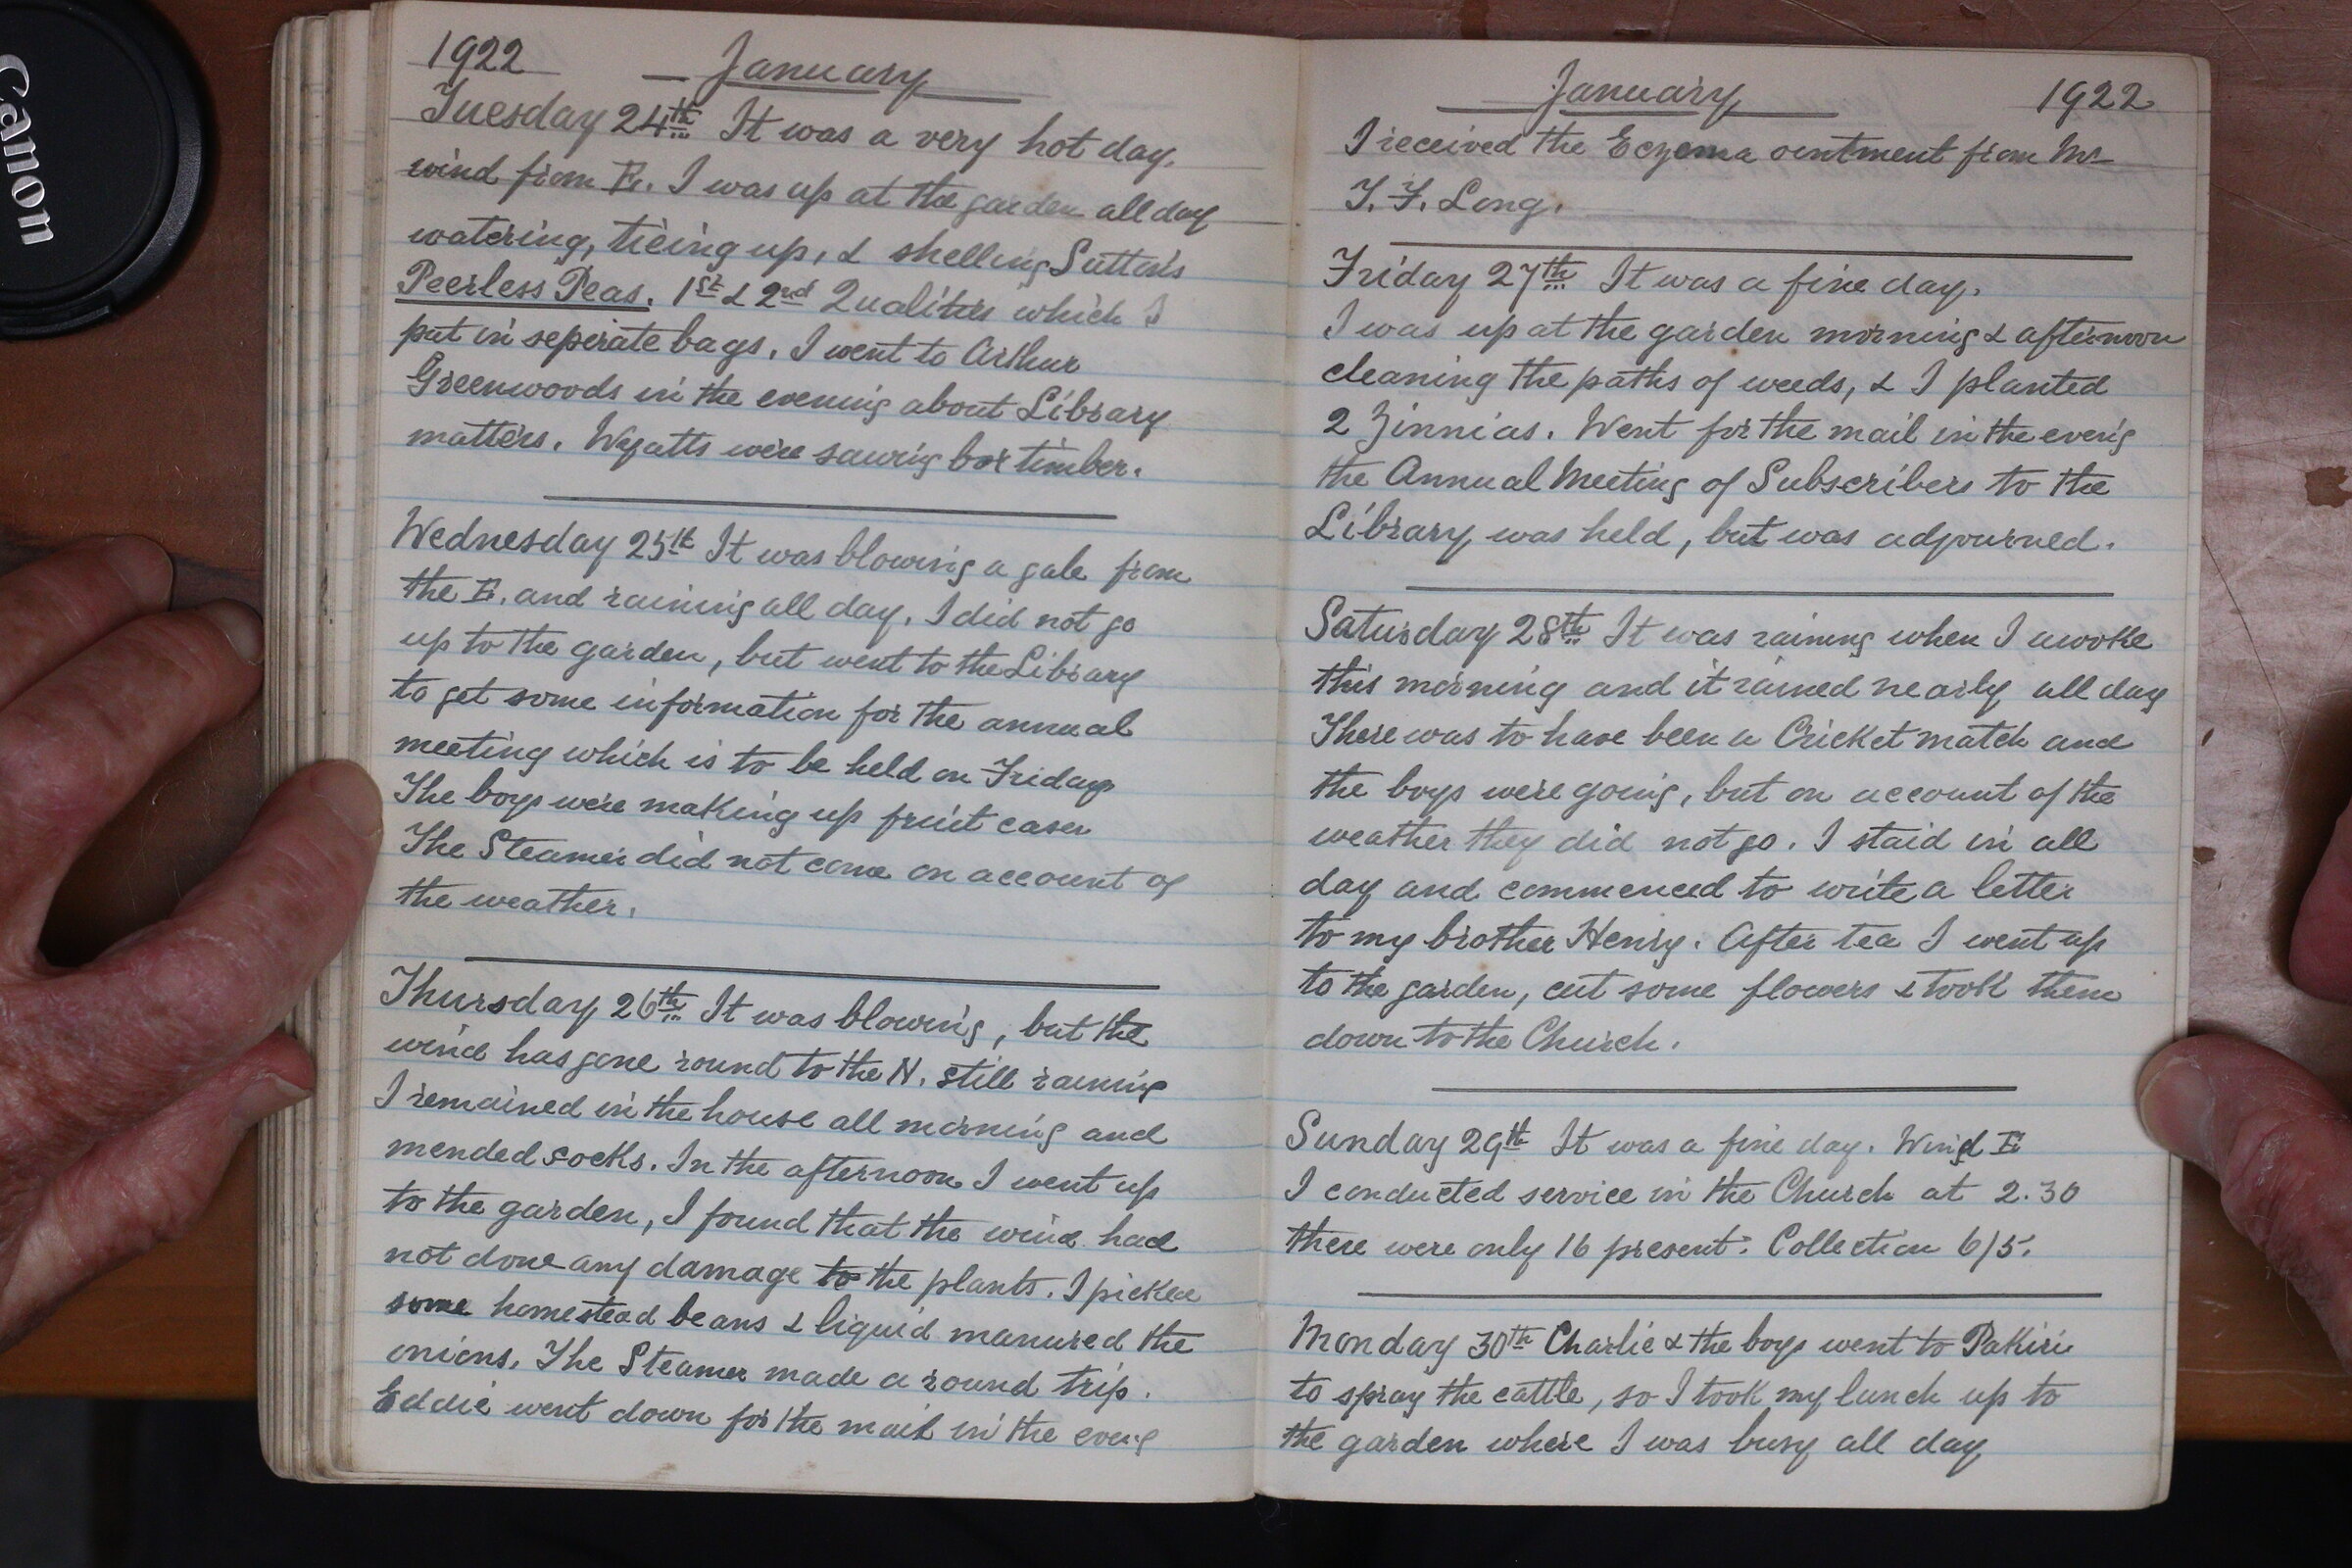 Canon
1922
January
Tuesday 24th It was a very hot day.
wind from E. I was up at the garden all day
watering, tieing up, & shelling Sutton's
Peerless Peas. 1st & 2nd Qualities which I
put in seperate bags. I went to Arthur
Greenwoods in the evening about Library
matters. Wyatts were sawing box timber.
Wednesday 25th It was blowing a gale from
the E. and raining all day. I did not go
up to the garden, but went to the Library
to get some information for the annual
meeting which is to be held on Friday
The boys were making up fruit cases
The Steamer did not come on account of
the weather.
Thursday 26th It was blowing, but the
wind has gone round to the N. still raining
I remained in the house all morning and
mended socks. In the afternoon I went up
to the garden, I found that the wind had
not done any damage to the plants. I picked
some homestead beans & liquid manured the
onions. The Steamer made a round trip.
Eddie went down for the mail in the eveng
January
1922
I received the Eczema ointment from Mr
T. F. Long.
Friday 27th It was a fine day.
I was up at the garden morning & afternoon
cleaning the paths of weeds, & I planted
2 Zinnias. Went for the mail in the eveng
the Annual Meeting of Subscribers to the
Library was held, but was adjourned.
Saturday 28th It was raining when I awoke
this morning and it rained nearly all day
There was to have been a Cricket match and
the boys were going, but on account of the
weather they did not go. I staid in all
day and commenced to write a letter
to my brother Henry. After tea I went up
to the garden, cut some flowers & took them
down to the Church.
Sunday 29th It was a fine day. Wind E
I conducted service in the Church at 2.30
there were only 16 present. Collection 6/5.
Monday 30th Charlie & the boys went to Pakiri
to spray the cattle, so I took my lunch up to
the garden where I was busy all day